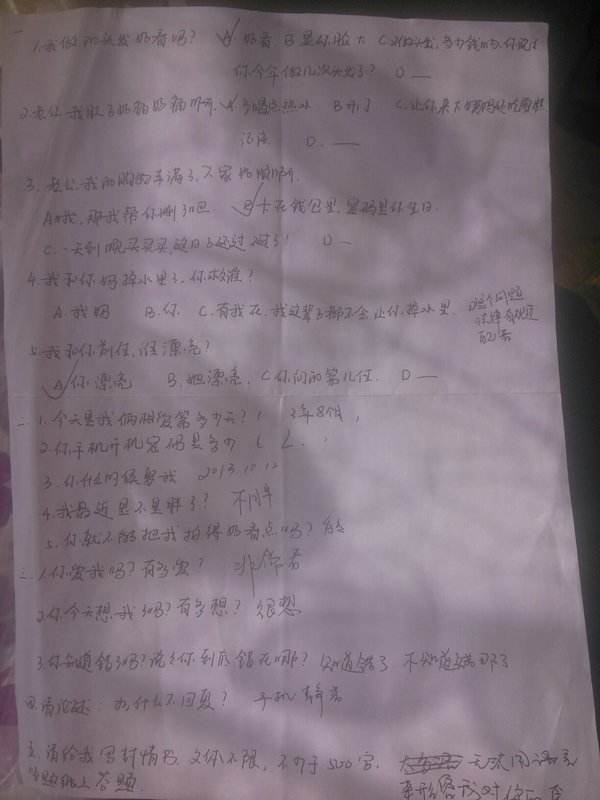 一
1.我做的头发好看吗? A 好看. B 显你脸大 C 又做头发,多少钱
你今年做几次头发了? D —
2.老公,我肚子好痛好痛啊. A 多喝点热水 B 开门 C.让你来大姨妈还吃雪糕
活该 D. —
3.老公,我的购物车满了,
A. 哦,那我帮你删了吧. B 卡在钱包里,密码是你生日.
C. 一天到晚买买买,这日子还过不过了! D —
4.我和你妈掉水里了,你救谁?
A. 我妈 B.你. C.有我在,我这辈子都不会让你掉水里. D这个问题
法律有规定
5.我和你前任,谁漂亮?
A 你漂亮 B.她漂亮. C.你问的第几任. D —
二. 1.今天是我俩相爱第多少天? 3年8个月
2.你手机开机密码是多少
3.你什么时候娶我 2013.10.12
4.我最近是不是胖了? 不胖
5.你就不能把我拍得好看点吗? 能
三. 1.你爱我吗?有多爱? 非常爱
2.你今天想我了吗?有多想? 很想
3.你知道错了吗?说说你到底错在哪? 知道错了 不知道错哪了
四.请论述:为什么不回复? 手机静音
五.请给我写封情书,文体不限,不少于500字. 无法用语言
答题纸上答题. 来形容我对你的